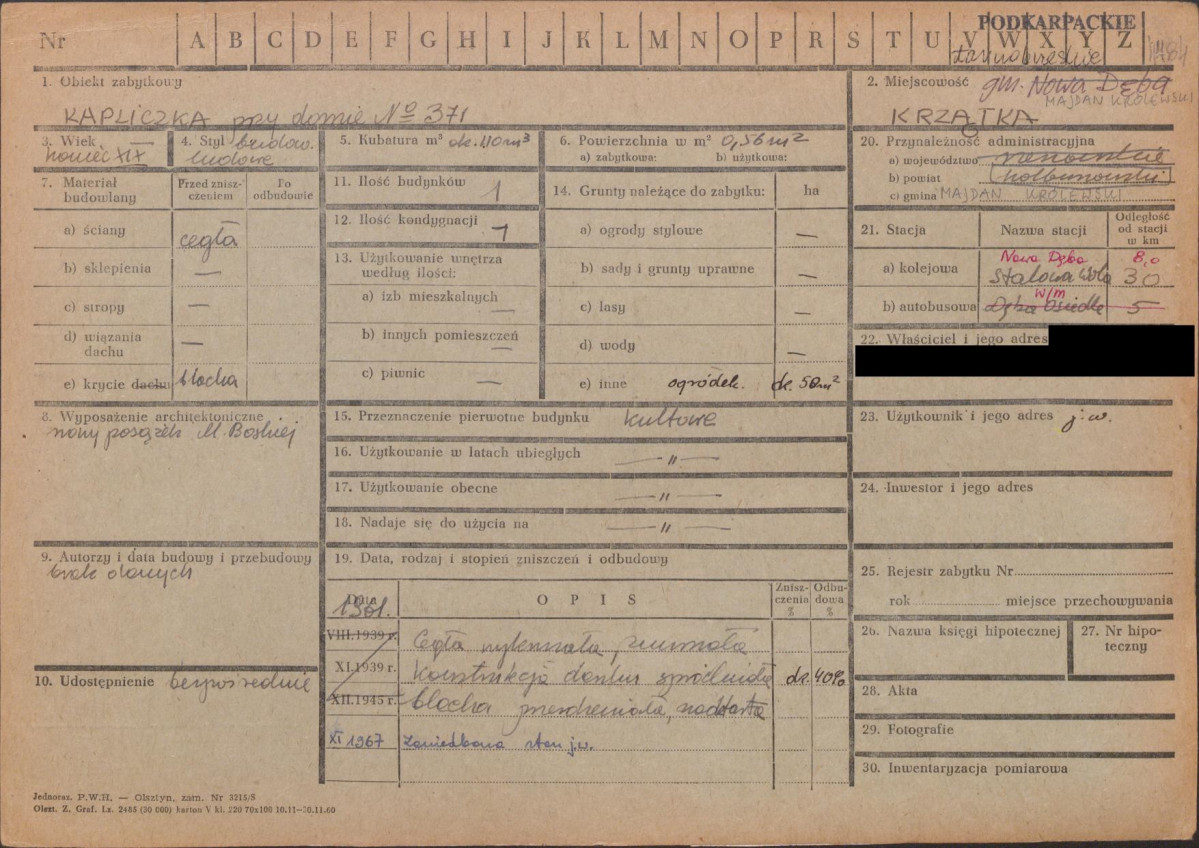 PODKARPACKIE
Nr A B C D E F G H I J K L M N O P R S T U V W X Y Z
tarnobrzeskie
1. Obiekt zabytkowy
KAPLICZKA przy domie No 371
2. Miejscowość gm. Nowa Dęba
MAJDAN KRÓLEWSKI
KRZĄTKA
3. Wiek
koniec XIX
4. Styl budow.
ludowe
5. Kubatura m³ ok. 1,10 m³
6. Powierzchnia w m² 0,56 m²
a) zabytkowa: b) użytkowa:
20. Przynależność administracyjna
a) województwo rzeszowskie
b) powiat kolbuszowski
c) gmina MAJDAN KRÓLEWSKI
7. Materiał budowlany
Przed zniszczeniem
Po odbudowie
a) ściany cegła
b) sklepienia —
c) stropy —
d) wiązania dachu —
e) krycie dachu blacha
11. Ilość budynków 1
12. Ilość kondygnacji 1
13. Użytkowanie wnętrza według ilości:
a) izb mieszkalnych —
b) innych pomieszczeń —
c) piwnic —
14. Grunty należące do zabytku: ha
a) ogrody stylowe —
b) sady i grunty uprawne —
c) lasy —
d) wody —
e) inne ogródek. ok. 50 m²
21. Stacja Nazwa stacji Odległość od stacji w km
Nowa Dęba 8,0
a) kolejowa Stalowa Wola 30
w/m
b) autobusowa Dęba Osiedle 5
22. Właściciel i jego adres
8. Wyposażenie architektoniczne
nowy posążek M. Boskiej
15. Przeznaczenie pierwotne budynku kultowe
16. Użytkowanie w latach ubiegłych — " —
17. Użytkowanie obecne — " —
18. Nadaje się do użycia na — " —
23. Użytkownik i jego adres j.w.
24. Inwestor i jego adres
9. Autorzy i data budowy i przebudowy
brak danych
10. Udostępnienie bezpośrednie
19. Data, rodzaj i stopień zniszczeń i odbudowy
Data OPIS Zniszczenia % Odbudowa %
1961.
VIII.1939 r. Cegła zmurszała
XI.1939 r. Konstrukcja dachu spróchniała ok. 40%
XII.1945 r. blacha przerdzewiała, naddarta
XI 1967 Zaniedbana stan j.w.
25. Rejestr zabytku Nr
rok miejsce przechowywania
26. Nazwa księgi hipotecznej
27. Nr hipoteczny
28. Akta
29. Fotografie
30. Inwentaryzacja pomiarowa
Jednoraz. P.W.H. — Olsztyn, zam. Nr 3215/S
Olszt. Z. Graf. Lz. 2455 (30 000) karton V kl. 220 70x100 10.11—30.11.60